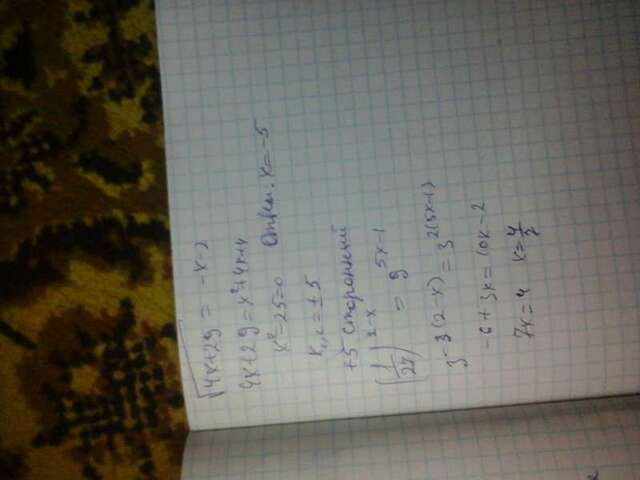 √4x+29 = -x-2
4x+29=x²+4x+4
x²-25=0 Ответ: x=-5
x₁,₂=±5
+5 сторонний
(1/27)^(2-x) = 9^(5x-1)
3^(-3(2-x)) = 3^(2(5x-1))
-6+3x=10x-2
7x=4 x=4/7